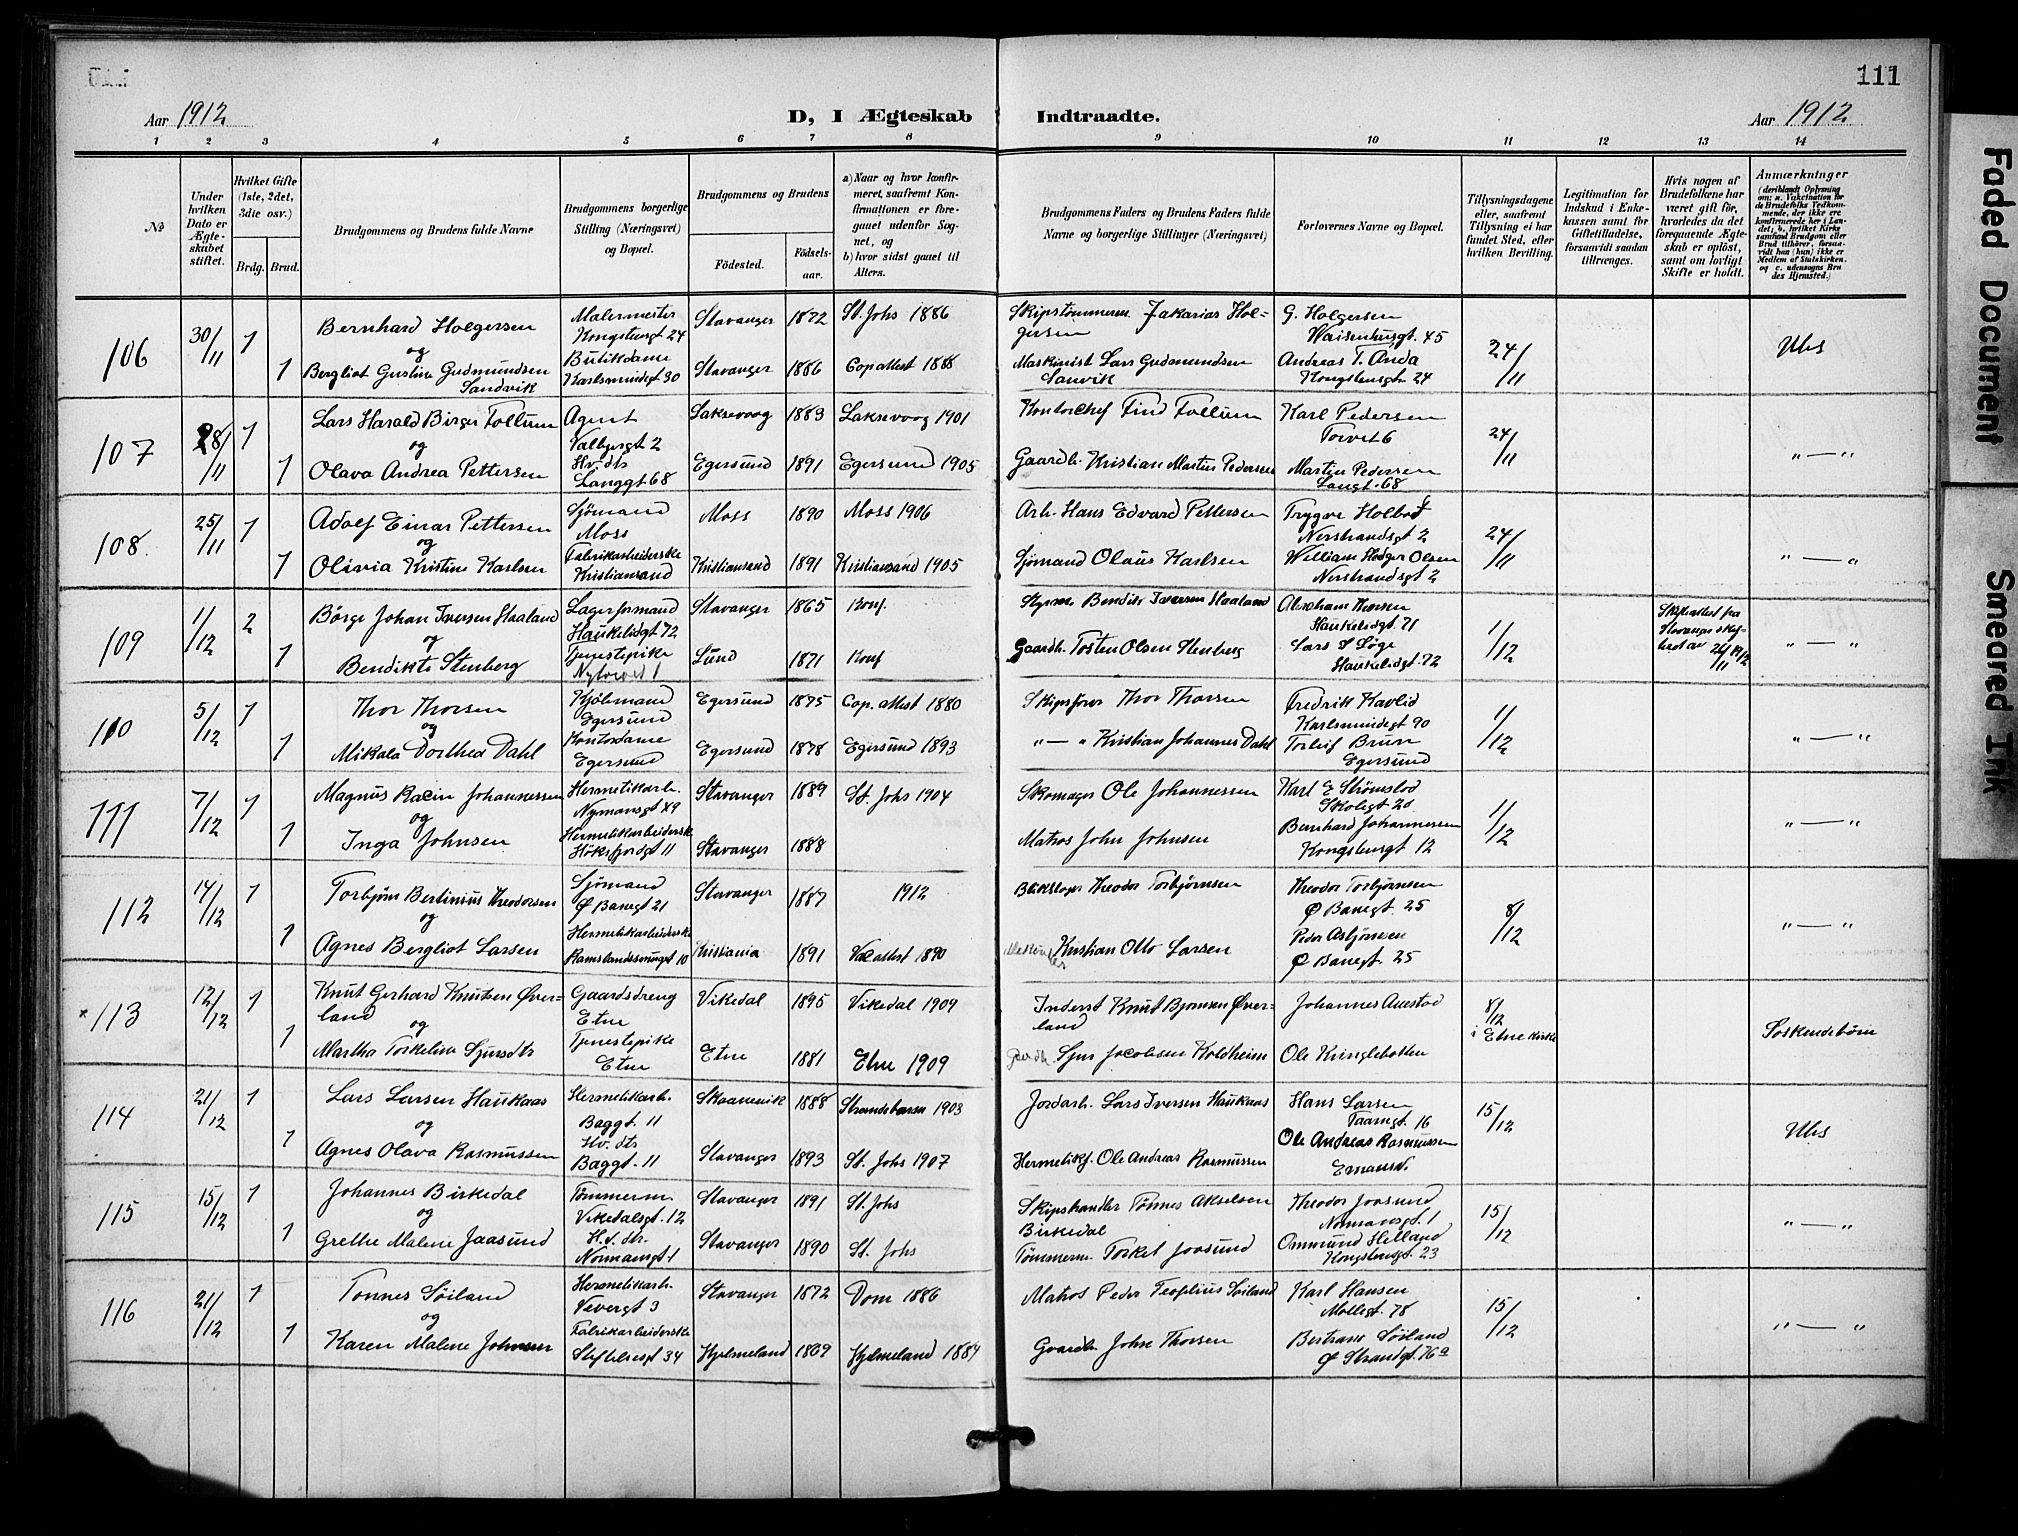 111
Aar 1912
D, I Ægteskab Indtraadte.
Aar 1912
1 2 3 4 5 6 7 8 9 10 11 12 13 14
No
Under hvilken Dato er Ægteskabet stiftet.
Hvilket Gifte (1ste, 2det, 3die osv.)
Brdg. Brud.
Brudgommens og Brudens fulde Navne
Brudgommens borgerlige Stilling (Næringsvei) og Bopæl.
Brudgommens og Brudens
Fødested.
Fødselsaar.
a) Naar og hvor konfirmeret, saafremt Konfirmationen er foregaaet udenfor Sognet, og
b) hvor sidst gaaet til Alters.
Brudgommens Faders og Brudens Faders fulde Navne og borgerlige Stillinger (Næringsvei)
Forlovernes Navne og Bopæl.
Tillysningsdagene eller, saafremt Tillysning ei har fundet Sted, efter hvilken Bevilling.
Legitimation for Indskud i Enkekassen samt for Giftetilladelse, forsaavidt saadan tiltrænges.
Hvis nogen af Brudefolkene har været gift før, hvorledes da det foregaaende Ægteskab er opløst, samt om lovligt Skifte er holdt.
Anmærkninger
106 30/11 1 Bernhard Holgersen Malermester Kongsbergt 24 Stavanger 1872 St. Johs 1886 Skipstømmerm Zakarias Holgersen G. Holgersen Waisenhusgt. 45 24/11 Uhs
og
1 Bergliot Gustine Gudmundsen Sandvik Butikdame Karlsmindegt 30 Stavanger 1886 Cop attest 1888 Maskinist Lars Gudmundsen Sanvik Andreas T. Anda Kongsbergt 24
107 28/11 1 Lars Harald Birger Follum Agent Valbergt 2 Laksevaag 1883 Laksevaag 1901 Kontorchef Find Follum Karl Pedersen Torvet 6 24/11 " — "
og
1 Olava Andrea Pettersen Hv. dtr Langgt. 68 Egersund 1891 Egersund 1905 Gaardb. Kristian Martin Pedersen Martin Pedersen Langt. 68
108. 25/11 1 Adolf Einar Pettersen Sjømand Moss Moss 1890 Moss 1906 Arb. Hans Edvard Pettersen Trygve Nerstrandsgt 2 24/11 " — "
og
1 Olivia Kristine Karlsen Fabrikarbeiderske Kristiansand Kristiansand 1891 Kristiansand 1905 Sjømand Olaus Karlsen William Holger Olsen Nerstrandsgt 2
109 1/12 2 Børge Johan Iversen Haaland Lagerformand Haukelidgt 72 Stavanger 1865 Konf. Bendik Iversen Haaland Abraham Thorsen Haukelidgt. 71 1/12 Skifteattest fra Stavanger 26/11 1912 " — "
og
1 Bendikte Stenberg Tjenestepike Nytorvet 1 Lund 1871 Konf Gaardb. Tosten Olsen Stenberg Lars S Løge Haukelidgt. 72
110 5/12 1 Thor Thorsen Kjøbmand Egersund Egersund 1875 Cop. attest 1880 Skipsfører Thor Thorsen Fredrik Kavlid Karlsmindegt 90 1/12 " — "
og
1 Mikala Dorthea Dahl Kontordame Egersund Egersund 1878 Egersund 1893 " — " Kristian Johannes Dahl Torleif Brun Egersund
111 7/12 1 Magnus Johannessen Hermetikarb. Nymansgt 49 Stavanger 1889 St. Johs 1904 Skomager Ole Johannessen Karl E Strømstod Skolegt 20 1/12 " — "
og
1 Inga Johnsen Hermetikarbeiderske Høksfjordgt 11 Stavanger 1888 Matros John Johnsen Bernhard Johannessen Kongsbergt 12
112 14/12 1 Torbjørn Bertinius Theodorsen Sjømand Ø Banegt 21 Stavanger 1887 1912 Blikslager Theodor Torbjørnsen Theodor Torbjørnsen Ø Banegt. 25 8/12 " — "
og
1 Agnes Bergliot Larsen Hermetikarbeiderske Ramslandsmugt 10 Kristiania 1891 Vac attest 1890 Kristian Otto Larsen Peder Asbjørnsen Ø Banegt. 25
× 113 12/12 1 Knut Gerhard Knutsen Øverland Gaardsdreng Etne Vikedal 1895 Vikedal 1909 Inderst Knut Bjørnsen Øverland Johannes Auestad 8/12 i Etne kirke Søskendebørn
og
1 Martha Torkeline Sjursdtr Tjenestepike Etne Etne 1881 Etne 1909 Gaardb. Sjur Jacobsen Koldheim Ole Kringlebotten
114 21/12 1 Lars Larsen Haukaas Hermetikarb. Baggt. 11 Skaanevik 1888 Strandebarm 1903 Jordarb. Lars Iversen Haukaas Hans Larsen Taarngt. 16 15/12 Uhs
og
1 Agnes Olava Rasmussen Hv. dtr Baggt. 11 Stavanger 1893 St. Johs 1907 Hermetikf. Ole Andreas Rasmussen Ole Andreas Rasmussen
115 15/12 1 Johannes Birkedal Tømmerm. Vikedalsgt. 12 Stavanger 1891 St. Johs Skipshandler Tønnes Akselsen Birkedal Theodor Joasund Normansgt. 1 15/12 " — "
og
1 Grethe Malene Jaasund H.v. dtr. Normansgt. 1 Stavanger 1890 St. Johs Tømmerm. Torkel Joasund Ommund Helland Kongsbergt. 23
116 21/12 1 Tønnes Søiland Hermetikarb. Vevergt 3 Stavanger 1872 Dom 1886 Matros Peder Teoplius Søiland Karl Hansen Møllegt. 78 15/12 " — "
og
1 Karen Malene Johnsen Fabrikarbeiderske Stiftelsesgt 34 Hjelmeland 1869 Hjelmeland 1884 Gaardb. John Thorsen Bertrane Søiland Ø Strandgt. 76a
Faded Document
Smeared Ink